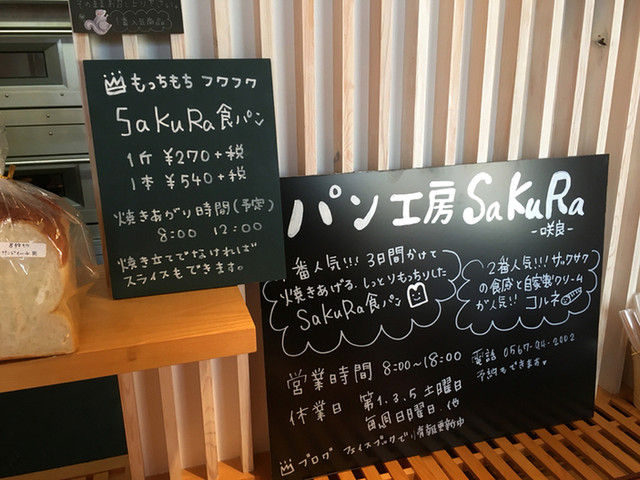 1番人気商品
もっちもち フワフワ
SakuRa食パン
1斤 ¥270+税
1本 ¥540+税
焼きあがり時間(予定)
8:00 12:00
焼き立てでなければ
スライスもできます。
パン工房 SaKuRa
-咲良-
一番人気!!! 3日間かけて
焼きあげる、しっとりもっちりした
SakuRa食パン
2番人気!!! サックサク
の食感と自家製クリーム
が人気!! コルネ
営業時間 8:00~18:00
休業日 第1.3.5 土曜日
毎週日曜日.他
電話 0567-94-2002
予約もできます♥
ブログ フェイスブックで情報更新中